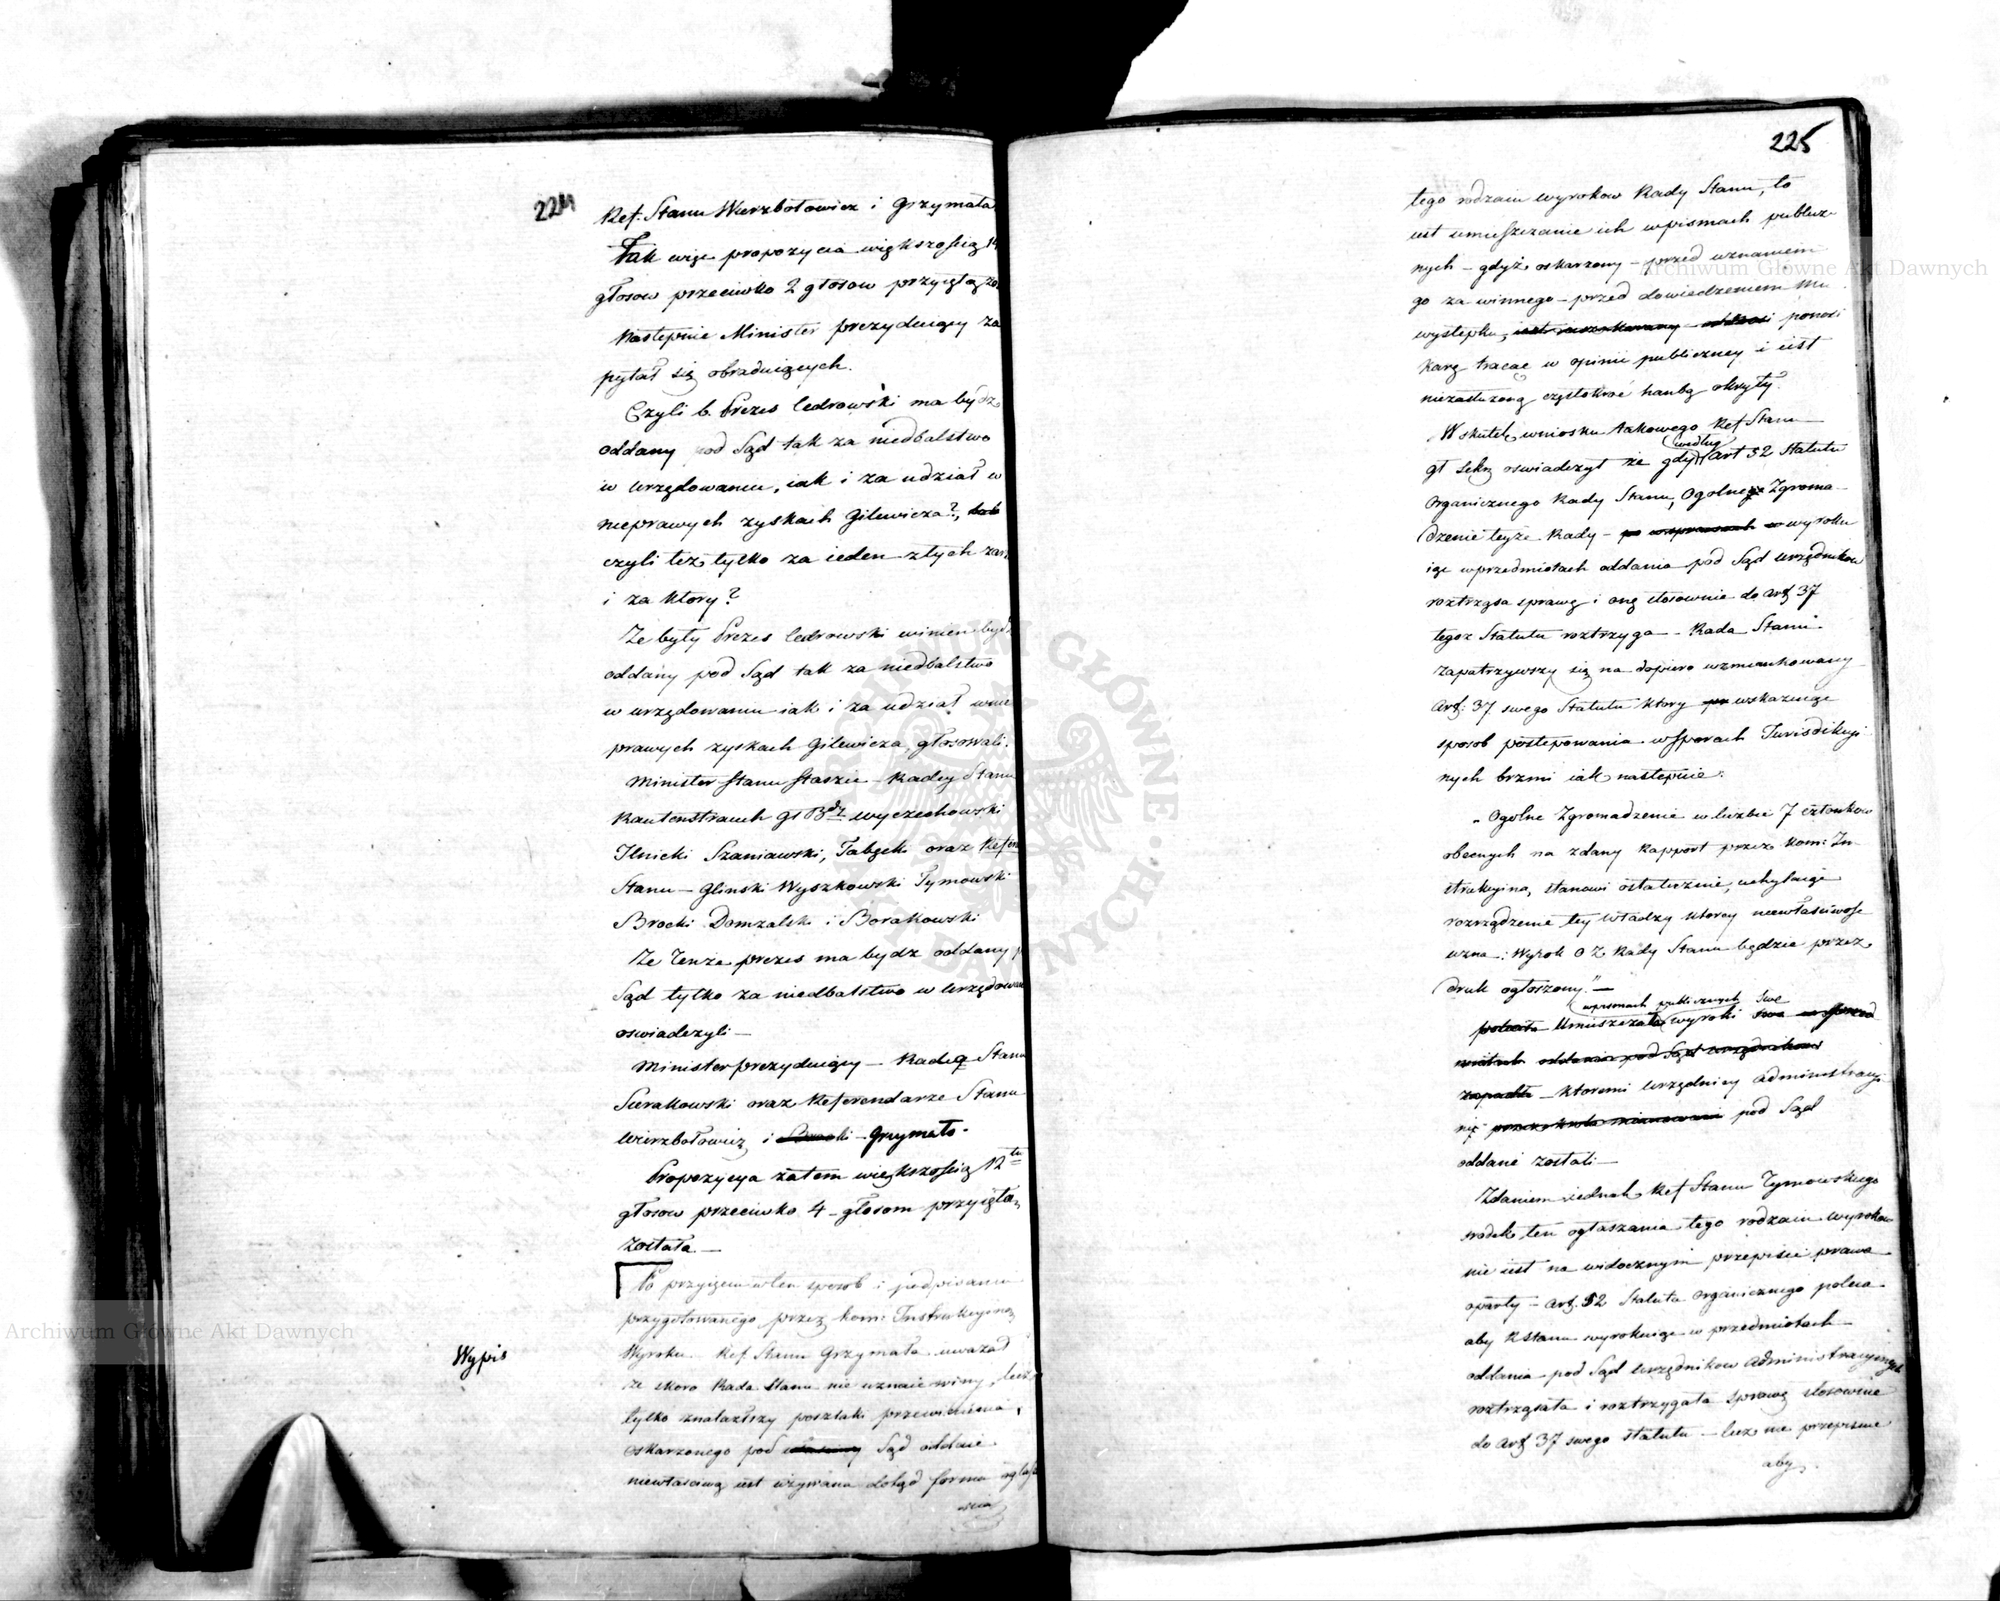 224
Ref. Stanu Wierzbołowicz i Grzymała
Tak więc propozycia większością 14
głosow przeciwko 2 głosow przyiętą zo
Następnie Minister prezyduiący za
pytał się obraduiących.
Czyli b. Prezes Cedrowski ma bydz
oddany pod Sąd tak za niedbalstwo
w urzędowaniu, iak i za udział w
nieprawych zyskach Gilewicza?,
czyli też tylko za ieden z tych zarz
i za ktory?
Że były Prezes Cedrowski winien bydz
oddany pod Sąd tak za niedbalstwo
w urzędowaniu iak i za udział wnie
prawych zyskach Gilewicza, głosowali.
Minister Stanu Staszic – Radcy Stanu
Rautenstrauch gł Bdy Wyczechowski
Ilnicki Szaniawski, Tabęcki oraz Refer
Stanu – Glinski Wyszkowski Tymowski
Brocki Domzalski i Borakowski
Że Tenże prezes ma bydz oddany p
Sąd tylko za niedbalstwo w urzędowan
oswiadczyli –
Minister prezyduiący – Radca Stanu
Sierakowski oraz Referendarze Stanu
Wierzbołowicz i Grzymało.
Propozycya zatem większością 12tu
głosow przeciwko 4 – głosom przyięta
została –
Po przyięciu w ten sposob i podpisaniu
przygotowanego przez kom: Instrukcyiną
Wyroku Ref Stanu Grzymała uważał
że skoro Rada Stanu nie uznaie winy, lecz
tylko znalazłszy poszlaki przewinienia,
oskarzonego pod Sąd oddaie
niewłasciwą iest używana dotąd forma ogłasz
ania
Wypis
225
tego rodzaiu wyrokow Rady Stanu, to
iest umieszczanie ich w pismach publicz
nych – gdyż oskarzony – przed uznaniem
go za winnego – przed dowiedzeniem Mu
występku, ponosi
karę tracąc w opinii publiczney i iest
niezasłużoną częstokroć hanbą okryty.
W skutek wniosku takowego Ref Stanu
według
gł Sekr oswiadczył że gdy Art 32 Statutu
Organicznego Rady Stanu, Ogolne Zgroma
dzenie teyże Rady – wyroku
iąc w przedmiotach oddania pod Sąd urzędnikow
roztrząsa sprawę i onę stosownie do art 37
tegoż Statutu roztrzyga – Rada Stanu
zapatrzywszy się na dopiero wzmiankowany
Art: 37 swego Statutu ktory wskazuiąc
sposob postępowania w sporach Jurisdikcyi
nych brzmi iak następnie:
„Ogolne Zgromadzenie w liczbie 7 członkow
obecnych na zdany Rapport przez kom: In
strukcyina, stanowi ostatecznie, uchylaiąc
rozrządzenie tey Władzy ktorey niewłasciwosc
uzna: Wyrok O Z Rady Stanu będzie przez
druk ogłoszony." –
w pismach publicznych swe
poleciła Umieszczała wyroki
ktoremi urzędnicy administracyi
ni pod Sąd
oddani zostali –
Zdaniem iednak Ref Stanu Tymowskiego
srodek ten ogłaszania tego rodzaiu wyrokow
nie iest na widocznym przepisie prawa
oparty – art. 32 Statutu organicznego poleca
aby R Stanu wyrokuiąc w przedmiotach
oddania pod Sąd urzędnikow administracyinych
roztrząsała i roztrzygała sprawę stosownie
do Art 37 swego Statutu – lecz nie przepisuie
aby